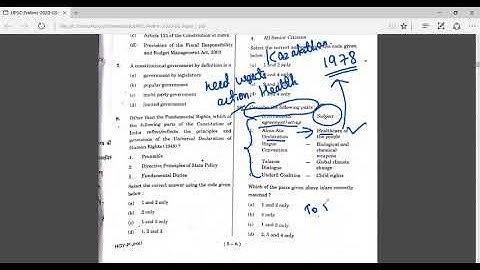 (c) Article 123 of the Constitution of India
(d) Provisions of the Fiscal Responsibility and Budget Management Act, 2003
7. A constitutional government by definition is a
(a) government by legislature
(b) popular government
(c) multi-party government
(d) limited government
8. Other than the Fundamental Rights, which of the following parts of the Constitution of India reflect/reflects the principles and provisions of the Universal Declaration of Human Rights (1948)?
1. Preamble
2. Directive Principles of State Policy
3. Fundamental Duties
Select the correct answer using the code given below :
(a) 1 and 2 only
(b) 2 only
(c) 1 and 3 only
(d) 1, 2 and 3
4. All Senior Citizens
Select the correct
given
below
Kazakhstan
1978.
need urgent
action. Health
the following pairs
agreement/set-up
Subject
Alma-Ata Declaration
Healthcare of the people
Hague Convention
Biological and chemical weapons
Talanoa Dialogue
Global climate change
Under2 Coalition
Child rights
Which of the pairs given above is/are correctly matched ?
(a) 1 and 2 only
(b) 4 only
(c) 1 and 3 only
(d) 2, 3 and 4 only
To